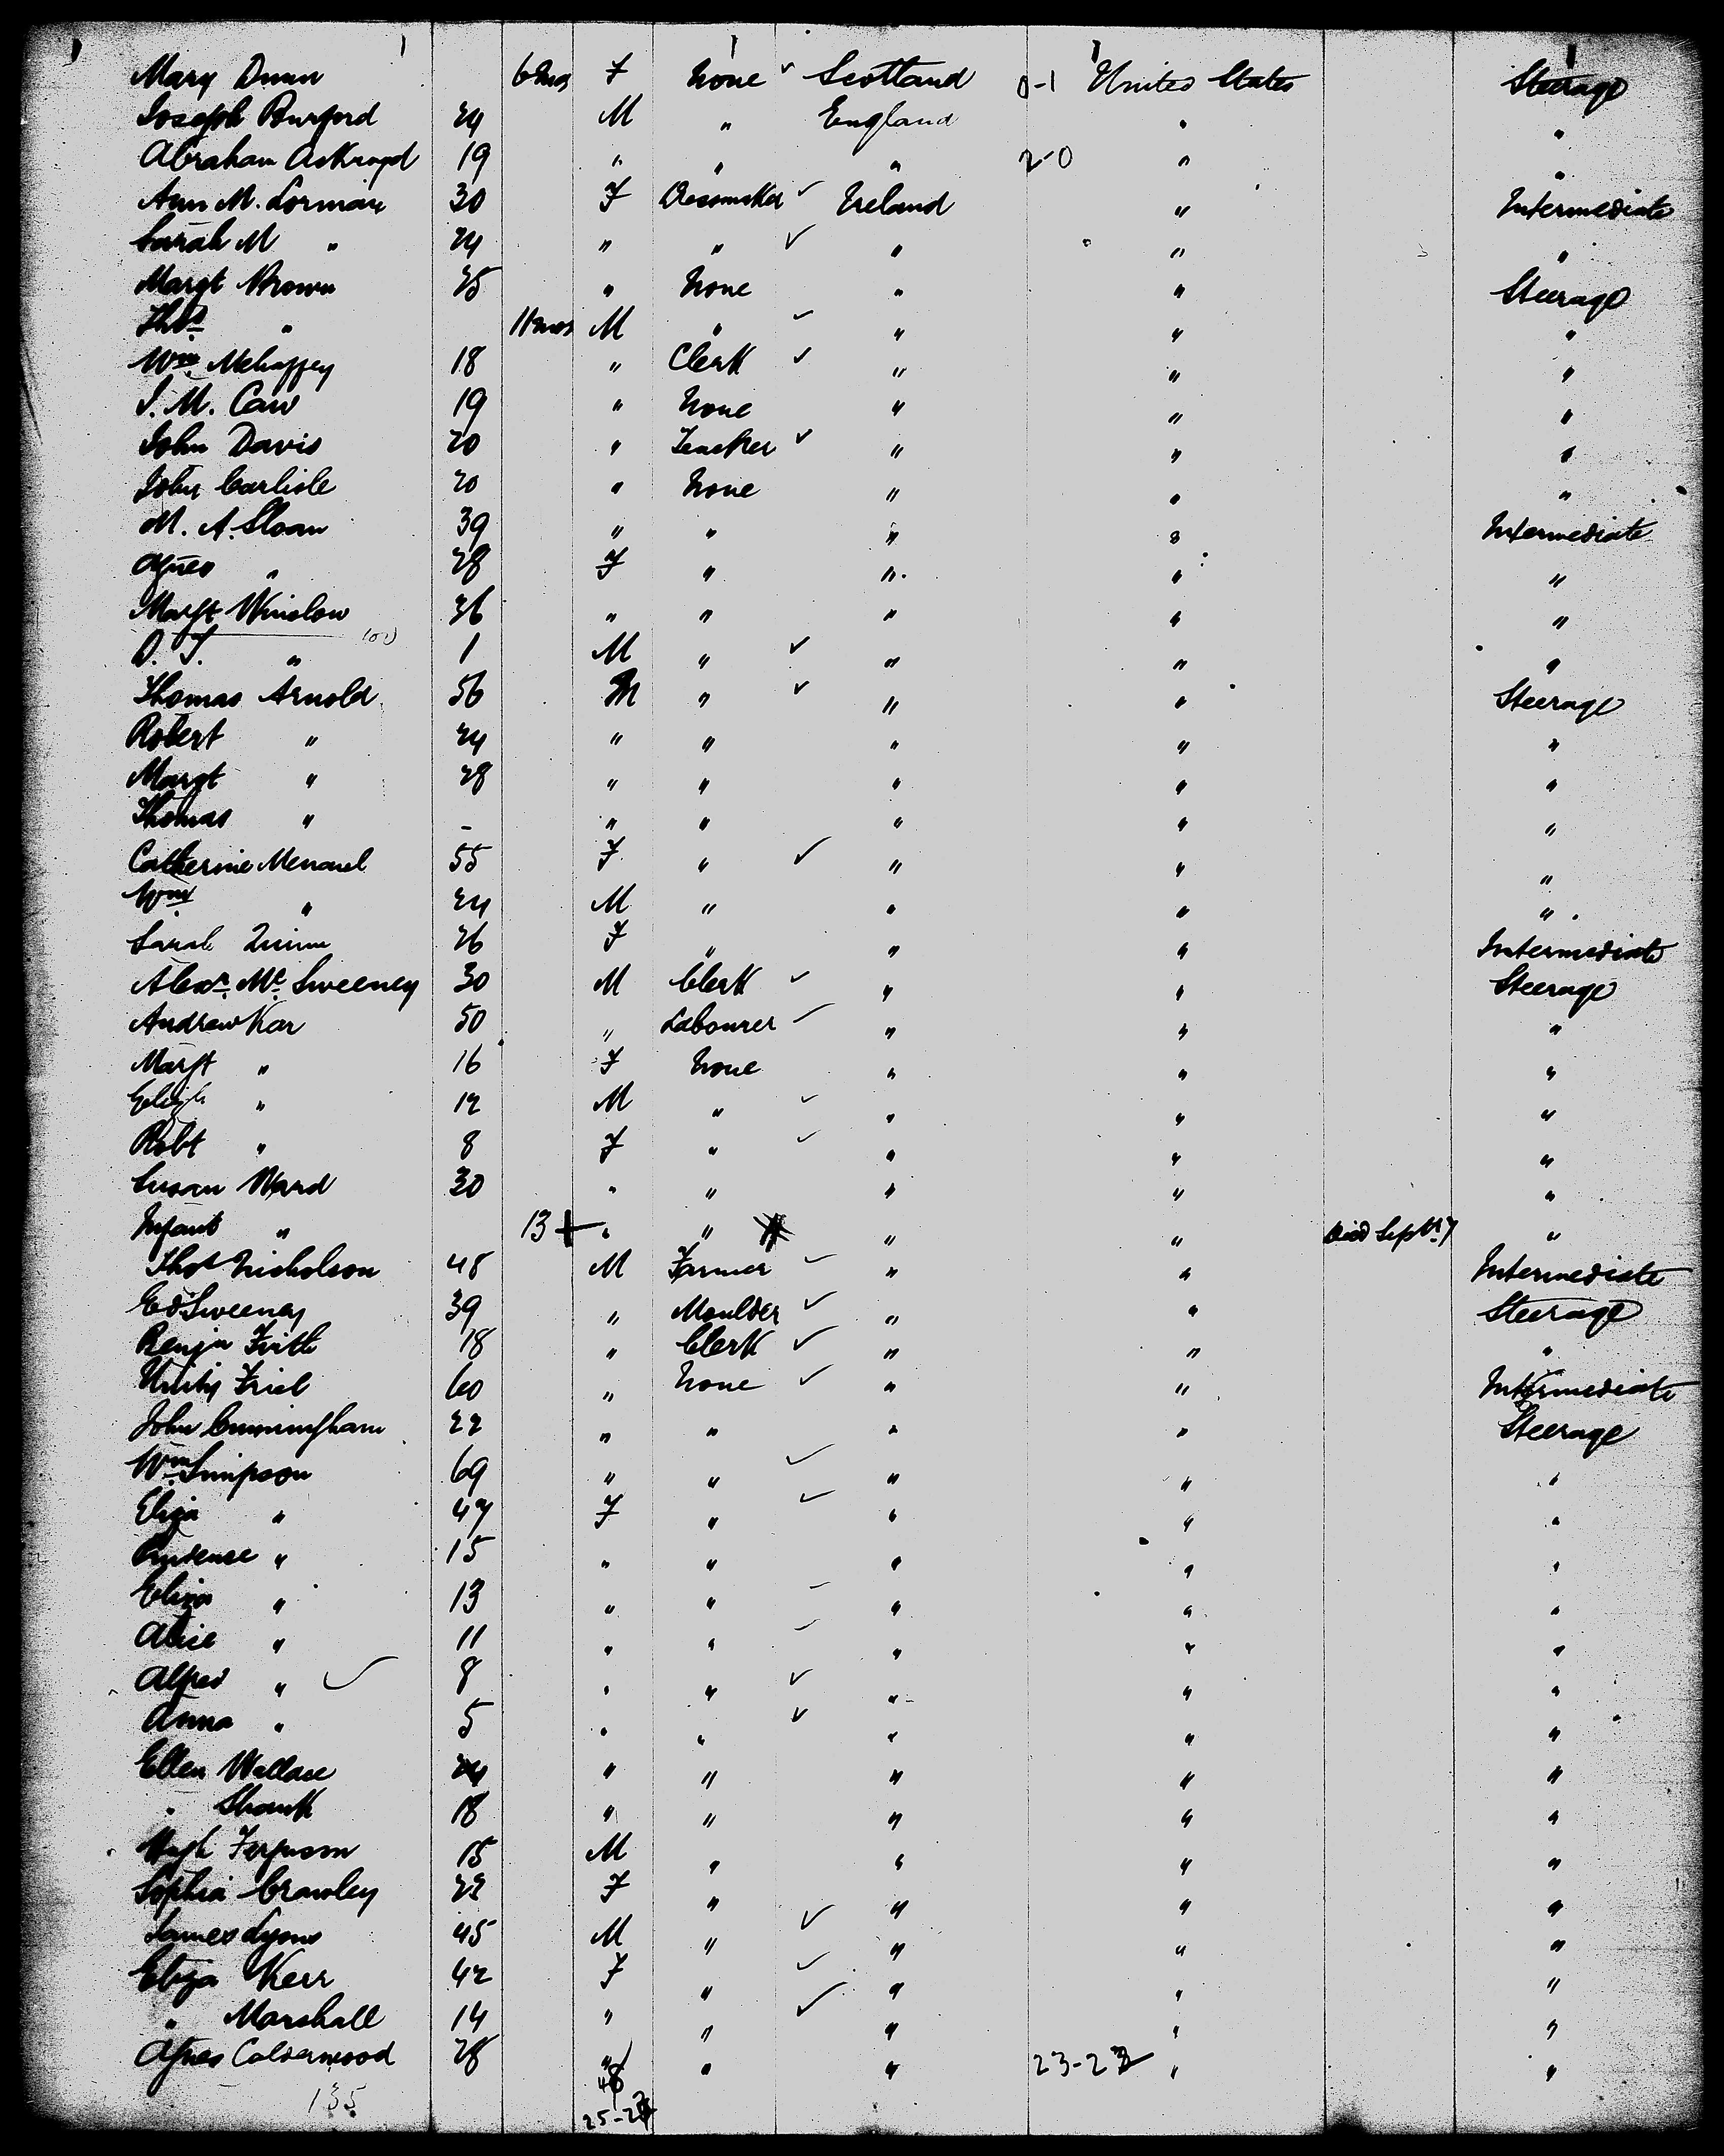 Mary Dunn 6 mos F None ✓ Scotland 0-1 United States Steerage
Joseph Burford 24 M " England " "
Abraham Ackroyd 19 " " " 2-0 " "
Ann M. Lormain 30 F Dressmaker ✓ Ireland " Intermediate
Sarah M " 24 " " ✓ " " "
Margt Brown 25 " None " " Steerage
Thos " 11 mos M " ✓ " " "
Wm Mehaffey 18 " Clerk ✓ " " "
J. M. Caw 19 " None " " "
John Davis 20 " Teacher ✓ " " "
John Carlisle 20 " None " " "
M. A. Sloan 39 " " " " Intermediate
Agnes " 28 F " " " "
Margt Winslow 36 " " " " "
" 1 M " ✓ " " "
Thomas Arnold 56 M " ✓ " " Steerage
Robert " 24 " " " " "
Margt " 28 " " " " "
Thomas " - " " " " "
Catherine Menaul 55 F " ✓ " " "
Wm " 24 M " " " "
Sarah Quinn 26 F " " " Intermediate
Alexr. Mc. Sweeney 30 M Clerk ✓ " " Steerage
Andrew Kar 50 " Labourer ✓ " " "
Margt " 16 F None " " "
" 12 M " ✓ " " "
Robt " 8 F " ✓ " " "
Susan Ward 30 " " " " "
Infant " 13 + " " " " Died Sept 17 "
Thos Nicholson 48 M Farmer ✓ " " Intermediate
Ed Sweeney 39 " Moulder ✓ " " Steerage
Benjn Frith 18 " Clerk ✓ " " "
Friel 60 " None ✓ " " Intermediate
John Cunningham 22 " " " " Steerage
Wm Simpson 69 " " ✓ " " "
Eliza " 47 F " ✓ " " "
Prudence " 15 " " " " "
Eliza " 13 " " " " "
Alice " 11 " " " " "
Alfred " ✓ 8 " " ✓ " " "
Anna " 5 " " ✓ " " "
Ellen Wallace 24 " " " " "
" Shank 18 " " " " "
Hugh Ferguson 15 M " " " "
Sophia Crawley 22 F " " " "
James Lyons 45 M " ✓ " " "
Eliza Kerr 42 F " ✓ " " "
" Marshall 14 " " ✓ " " "
Agnes Calderwood 28 " " " 23-23 " "
135 48
25-24